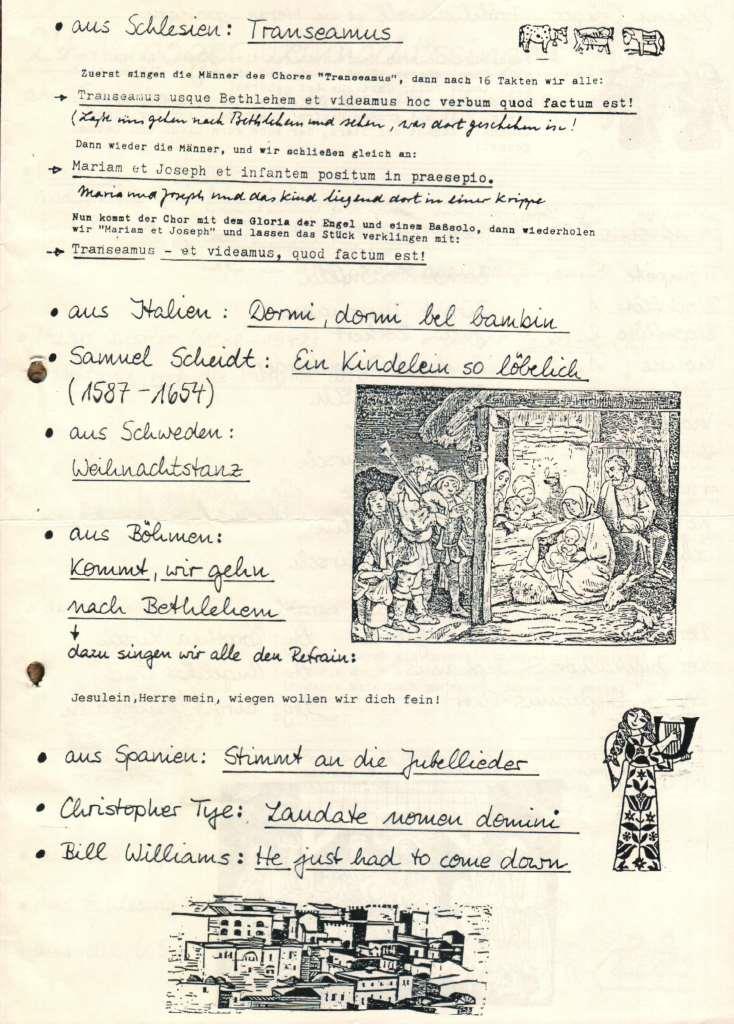 • aus Schlesien: Transeamus
Zuerst singen die Männer des Chores "Transeamus", dann nach 16 Takten wir alle:
→ Transeamus usque Bethlehem et videamus hoc verbum quod factum est!
(Laßt uns gehen nach Bethlehem und sehen, was dort geschehen ist!
Dann wieder die Männer, und wir schließen gleich an:
→ Mariam et Joseph et infantem positum in praesepio.
Maria und Joseph und das Kind liegend dort in einer Krippe
Nun kommt der Chor mit dem Gloria der Engel und einem Baßsolo, dann wiederholen
wir "Mariam et Joseph" und lassen das Stück verklingen mit:
→ Transeamus - et videamus, quod factum est!
• aus Italien: Dormi, dormi bel bambin
• Samuel Scheidt: Ein Kindelein so löbelich
(1587-1654)
• aus Schweden:
Weihnachtstanz
• aus Böhmen:
Kommt, wir gehn
nach Bethlehem
↓
dazu singen wir alle den Refrain:
Jesulein,Herre mein, wiegen wollen wir dich fein!
• aus Spanien: Stimmt an die Jubellieder
• Christopher Tye: Laudate nomen domini
• Bill Williams: He just had to come down